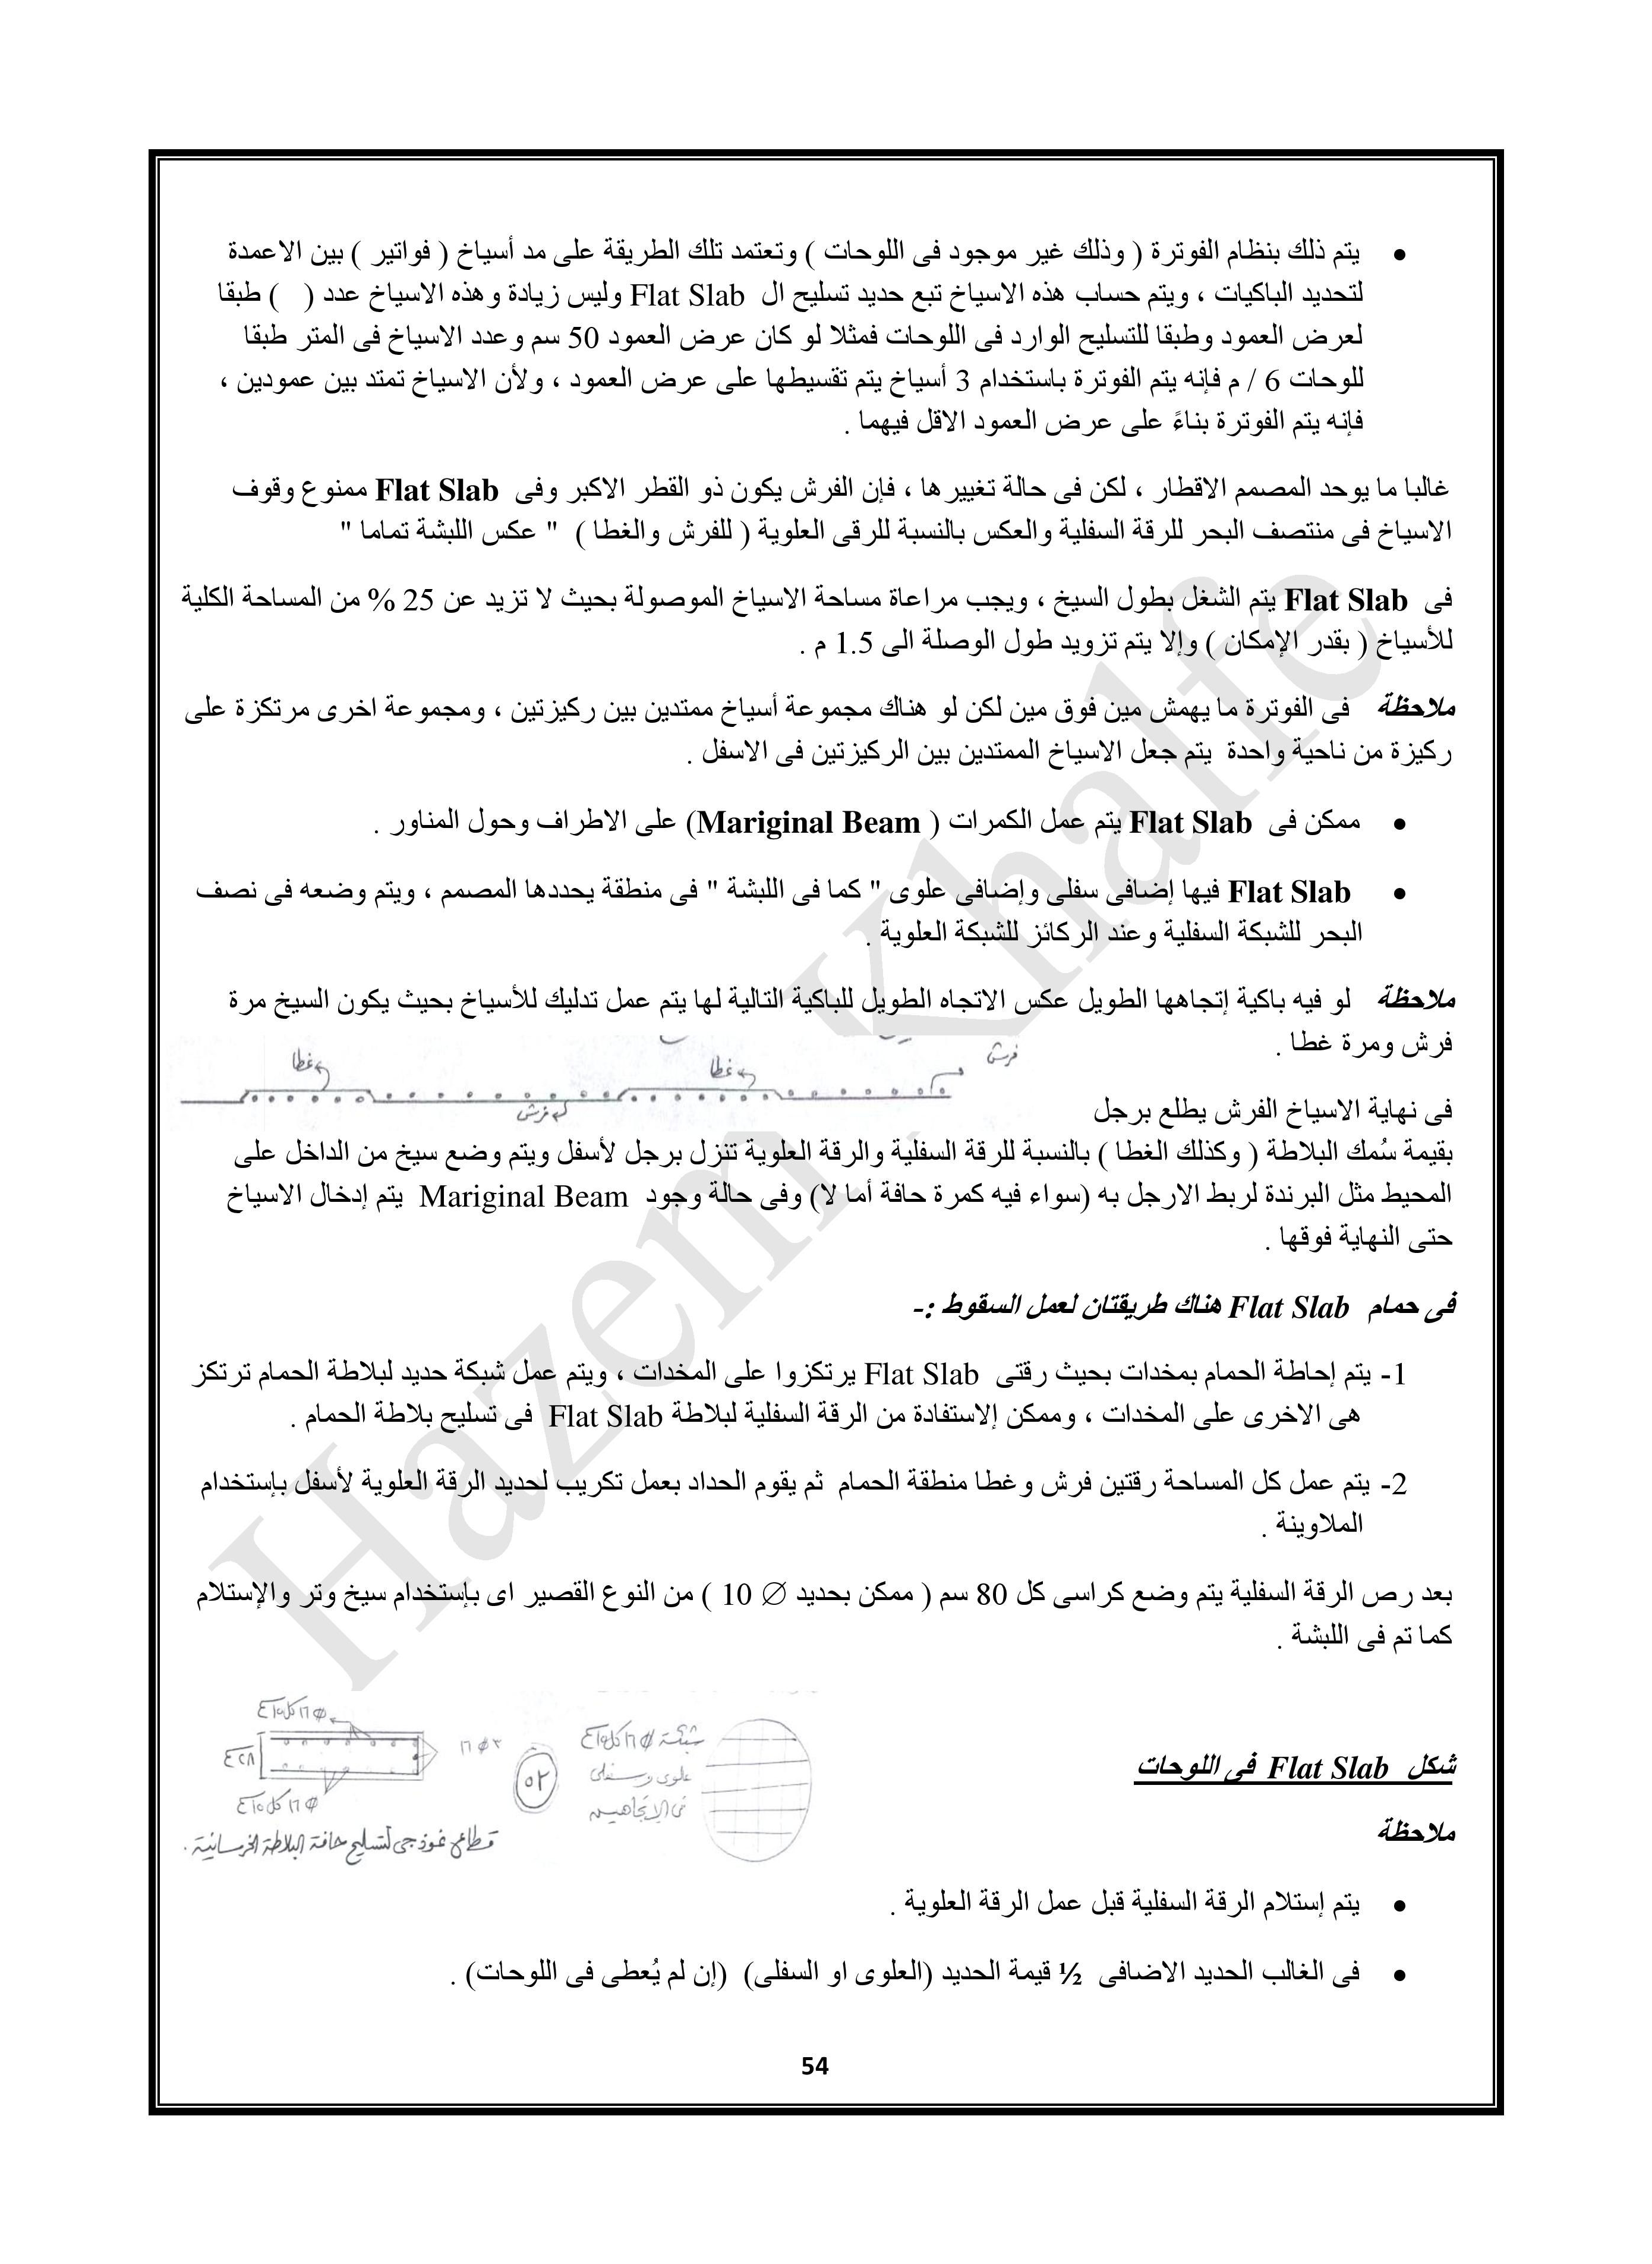 • يتم ذلك بنظام الفوترة ( وذلك غير موجود فى اللوحات ) وتعتمد تلك الطريقة على مد أسياخ ( فواتير ) بين الاعمدة
لتحديد الباكيات ، ويتم حساب هذه الاسياخ تبع حديد تسليح ال Flat Slab وليس زيادة وهذه الاسياخ عدد (   ) طبقا
لعرض العمود وطبقا للتسليح الوارد فى اللوحات فمثلا لو كان عرض العمود 50 سم وعدد الاسياخ فى المتر طبقا
للوحات 6 / م فإنه يتم الفوترة باستخدام 3 أسياخ يتم تقسيطها على عرض العمود ، ولأن الاسياخ تمتد بين عمودين ،
فإنه يتم الفوترة بناءً على عرض العمود الاقل فيهما .
غالبا ما يوحد المصمم الاقطار ، لكن فى حالة تغييرها ، فإن الفرش يكون ذو القطر الاكبر وفى Flat Slab ممنوع وقوف
الاسياخ فى منتصف البحر للرقة السفلية والعكس بالنسبة للرقى العلوية ( للفرش والغطا ) " عكس اللبشة تماما "
فى Flat Slab يتم الشغل بطول السيخ ، ويجب مراعاة مساحة الاسياخ الموصولة بحيث لا تزيد عن 25 % من المساحة الكلية
للأسياخ ( بقدر الإمكان ) وإلا يتم تزويد طول الوصلة الى 1.5 م .
ملاحظة فى الفوترة ما يهمش مين فوق مين لكن لو هناك مجموعة أسياخ ممتدين بين ركيزتين ، ومجموعة اخرى مرتكزة على
ركيزة من ناحية واحدة يتم جعل الاسياخ الممتدين بين الركيزتين فى الاسفل .
• ممكن فى Flat Slab يتم عمل الكمرات ( Mariginal Beam) على الاطراف وحول المناور .
• Flat Slab فيها إضافى سفلى وإضافى علوى " كما فى اللبشة " فى منطقة يحددها المصمم ، ويتم وضعه فى نصف
البحر للشبكة السفلية وعند الركائز للشبكة العلوية .
ملاحظة لو فيه باكية إتجاهها الطويل عكس الاتجاه الطويل للباكية التالية لها يتم عمل تدليك للأسياخ بحيث يكون السيخ مرة
فرش ومرة غطا .
فرش
غطا
غطا
فرش
فى نهاية الاسياخ الفرش يطلع برجل
بقيمة سُمك البلاطة ( وكذلك الغطا ) بالنسبة للرقة السفلية والرقة العلوية تنزل برجل لأسفل ويتم وضع سيخ من الداخل على
المحيط مثل البرندة لربط الارجل به (سواء فيه كمرة حافة أما لا) وفى حالة وجود Mariginal Beam يتم إدخال الاسياخ
حتى النهاية فوقها .
فى حمام Flat Slab هناك طريقتان لعمل السقوط :-
1- يتم إحاطة الحمام بمخدات بحيث رقتى Flat Slab يرتكزوا على المخدات ، ويتم عمل شبكة حديد لبلاطة الحمام ترتكز
هى الاخرى على المخدات ، وممكن إلاستفادة من الرقة السفلية لبلاطة Flat Slab فى تسليح بلاطة الحمام .
2- يتم عمل كل المساحة رقتين فرش وغطا منطقة الحمام ثم يقوم الحداد بعمل تكريب لحديد الرقة العلوية لأسفل بإستخدام
الملاوينة .
بعد رص الرقة السفلية يتم وضع كراسى كل 80 سم ( ممكن بحديد ∅ 10 ) من النوع القصير اى بإستخدام سيخ وتر والإستلام
كما تم فى اللبشة .
شبكة φ ١٦ كل ١٥
علوى وسفلى
فى الاتجاهين
٥٢
٢ φ ١٦
φ ١٦ كل ١٥
٢٨
φ ١٦ كل ١٥
قطاع نموذجى لتسليح حافة البلاطة الخرسانية .
شكل Flat Slab فى اللوحات
ملاحظة
• يتم إستلام الرقة السفلية قبل عمل الرقة العلوية .
• فى الغالب الحديد الاضافى ½ قيمة الحديد (العلوى او السفلى) (إن لم يُعطى فى اللوحات) .
54
Hazem Khalfe